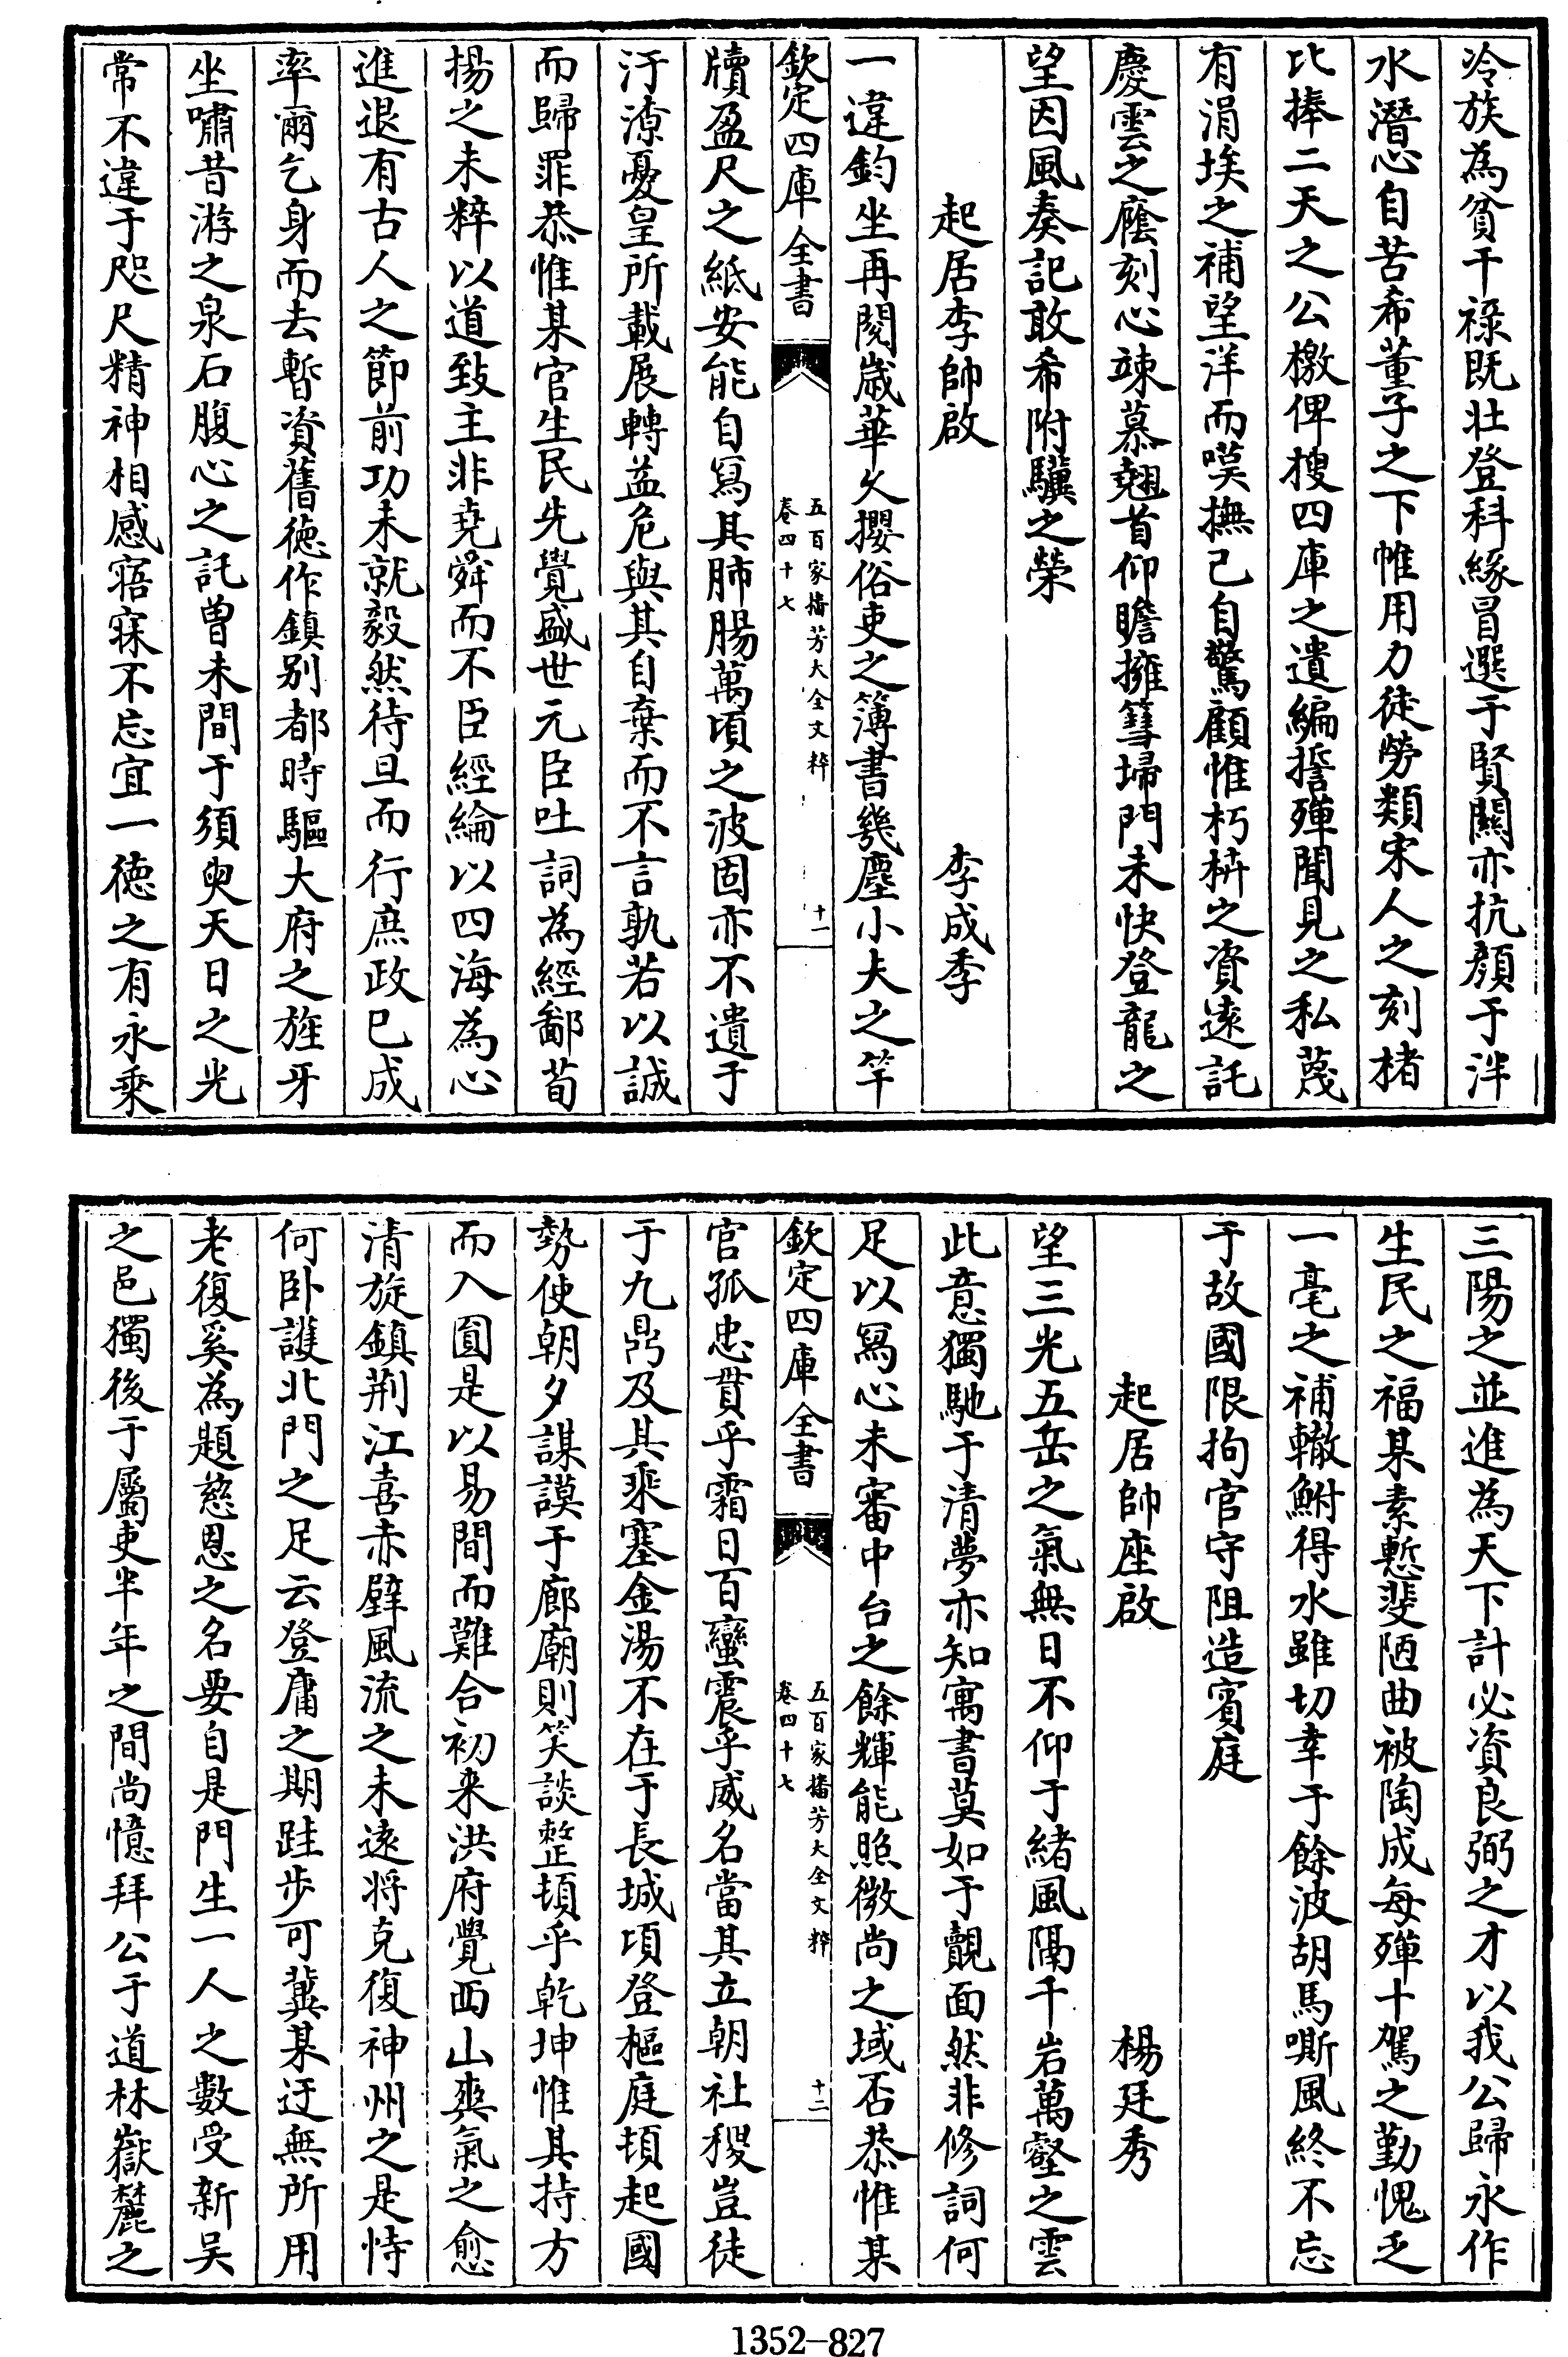 冷族為貧干祿既壯登科緣冒選于賢關亦抗顏于泮
水潛心自苦希董子之下帷用力徒勞類宋人之刻楮
比捧二天之公檄俾搜四庫之遺編誓殫聞見之私蔑
有涓埃之補望洋而嘆撫己自驚顧惟朽枿之資遠託
慶雲之廕刻心竦慕翹首仰瞻擁篲埽門未快登龍之
望因風奏記敢希附驥之榮
起居李帥啟 李成季
一違鈞坐再閱嵗華久攖俗吏之簿書幾塵小夫之竿
欽定四庫全書 五百家播芳大全文粹 卷四十七 十一
牘盈尺之紙安能自寫其肺腸萬頃之波固亦不遺于
汙潦憂皇所載展轉益危與其自棄而不言孰若以誠
而歸罪恭惟某官生民先覺盛世元臣吐詞為經鄙荀
揚之未粹以道致主非堯舜而不臣經綸以四海為心
進退有古人之節前功未就毅然待旦而行庶政已成
率爾乞身而去暫資舊徳作鎮别都時驅大府之旌牙
坐嘯昔游之泉石腹心之託曽未間于須臾天日之光
常不違于咫尺精神相感寤寐不忘宜一徳之有永乘
三陽之並進為天下計必資良弼之才以我公歸永作
生民之福某素慙斐陋曲被陶成每殫十駕之勤愧乏
一毫之補轍鮒得水雖切幸于餘波胡馬嘶風終不忘
于故國限拘官守阻造賓庭
起居帥座啟 楊廷秀
望三光五岳之氣無日不仰于緒風隔千岩萬壑之雲
此意獨馳于清夢亦知寓書莫如于覿面然非修詞何
足以寫心未審中台之餘輝能照微尚之域否恭惟某
欽定四庫全書 五百家播芳大全文粹 卷四十七 十二
官孤忠貫乎霜日百蠻震乎威名當其立朝社稷豈徒
于九鼎及其乘塞金湯不在于長城頃登樞庭頓起國
勢使朝夕謀謨于廊廟則笑談整頓乎乾坤惟其持方
而入圓是以易間而難合初來洪府覺西山爽氣之愈
清旋鎮荆江喜赤壁風流之未遠将克復神州之是恃
何卧護北門之足云登庸之期跬步可冀某迂無所用
老復奚為題慈恩之名要自是門生一人之數受新吳
之邑獨後于屬吏半年之間尚憶拜公于道林嶽麓之
1352-827